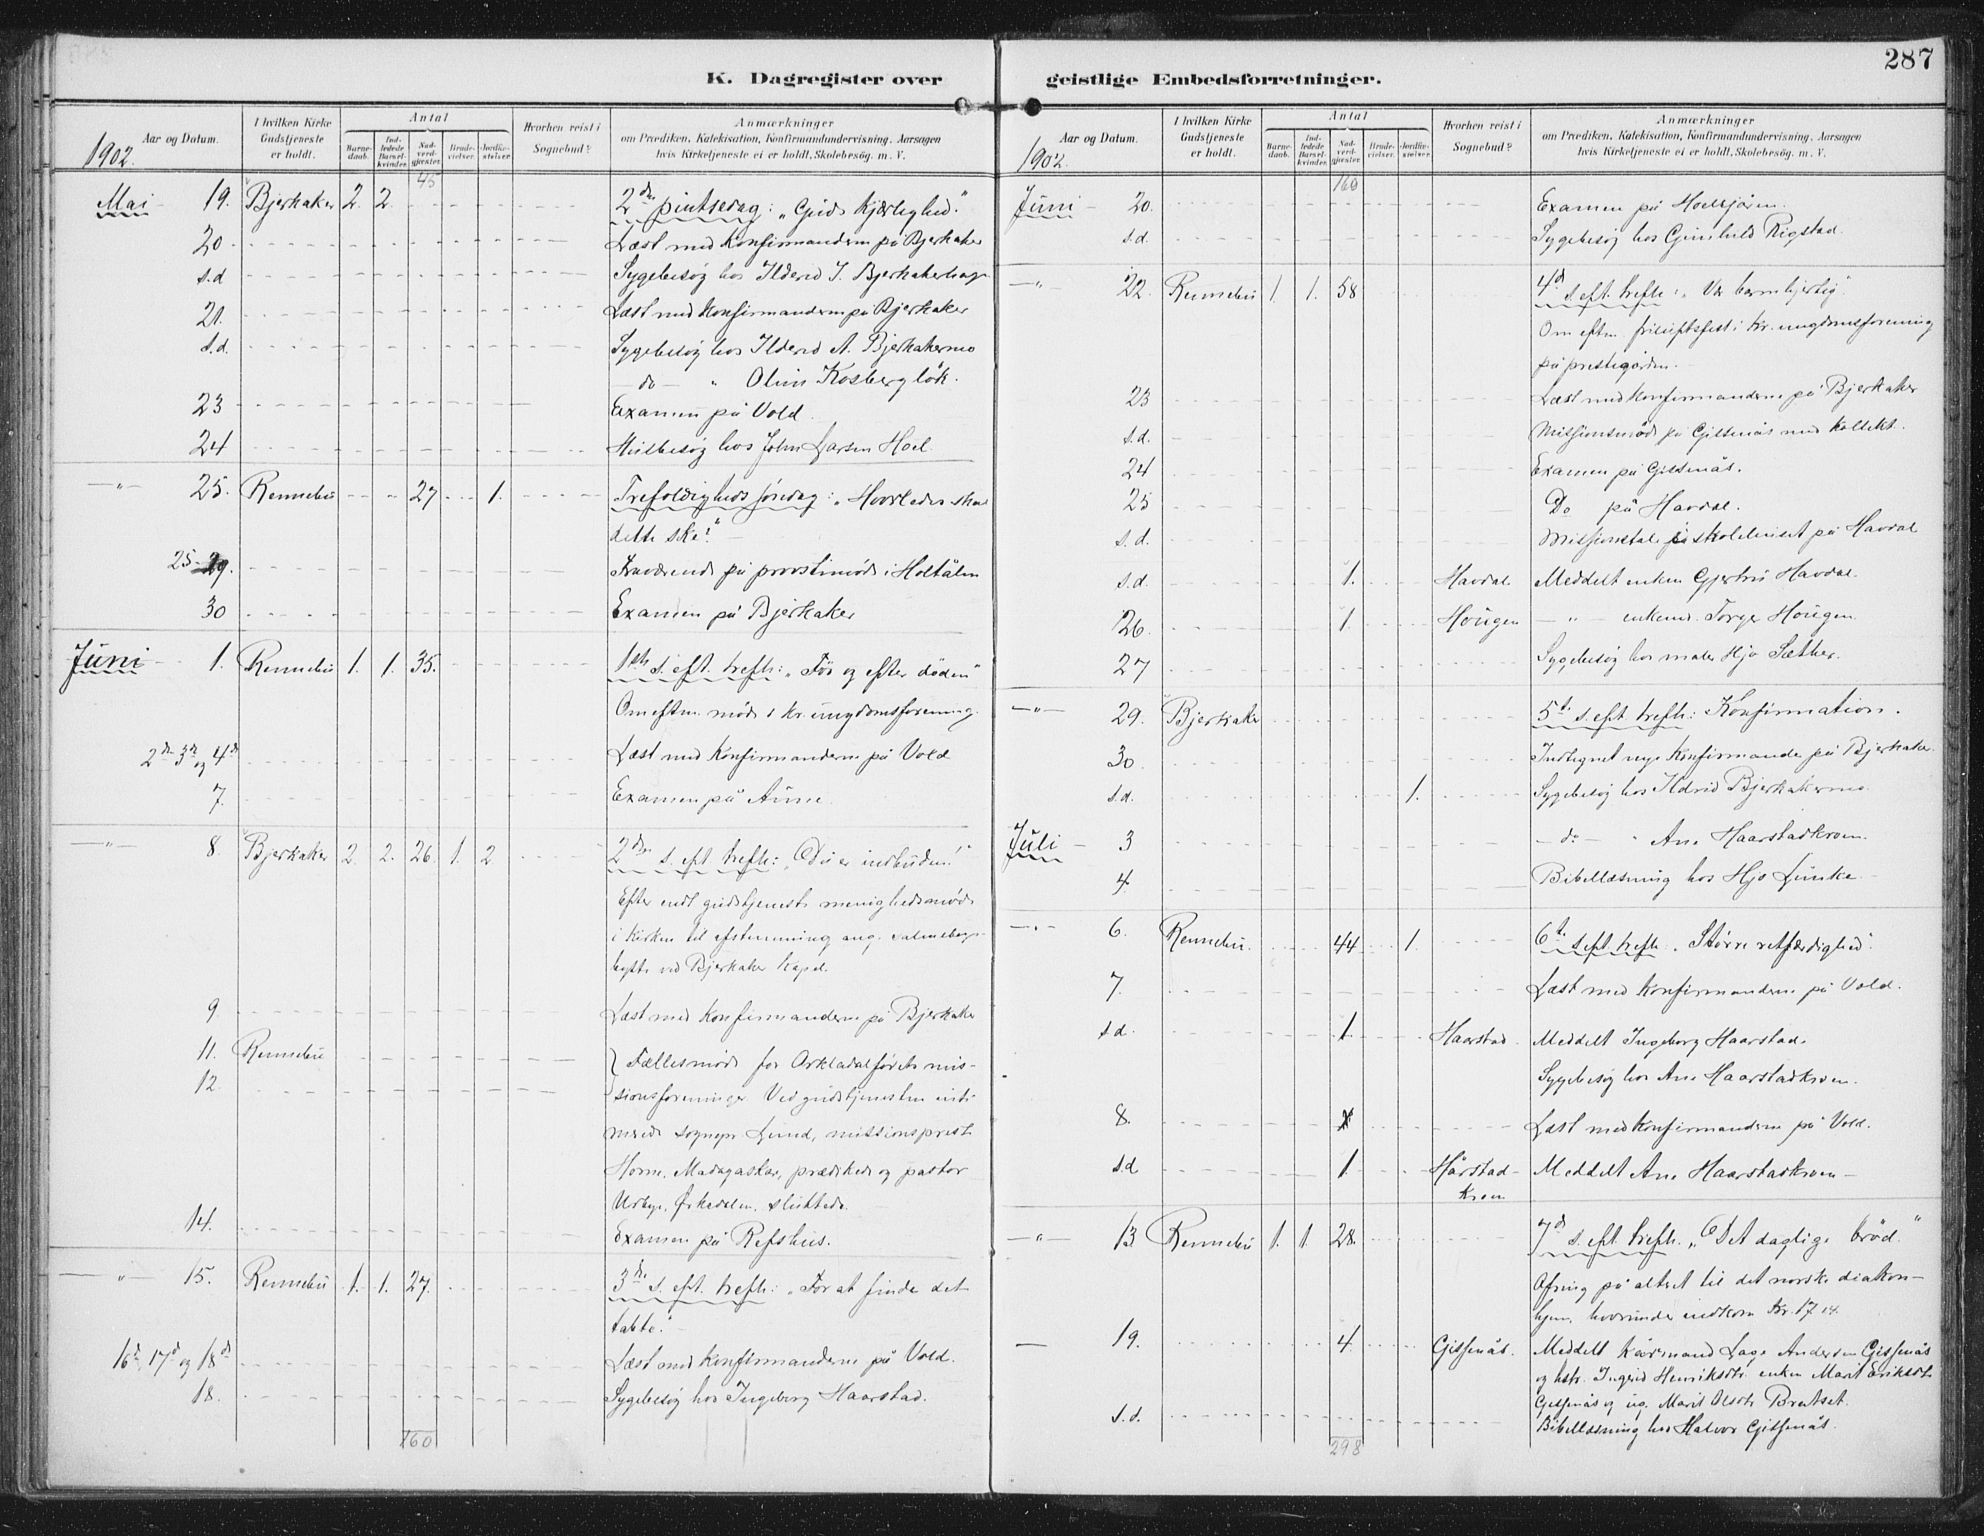 K. Dagregister over
Aar og Datum.
I hvilken Kirke Gudstjeneste er holdt.
Antal
Barnedaab.
Indledede Barselkvinder.
Nadverdgjester.
Brudevielser.
Jordfæstelser.
Hvorhen reist i Sognebud?
Anmærkninger
om Prædiken, Katekisation, Konfirmandundervisning, Aarsagen
hvis Kirketjeneste ei er holdt, Skolebesøg. m. V.
1902.
45
Mai 19. Bjerkaker 2 2 2den pintsedag: "Guds kjærlighed."
20 Læst med konfirmanderne på Bjerkaker
s.d Sygebesøg hos Ilderid I. Bjerkakerhage
21. Læst med konfirmanderne på Bjerkaker
s.d. Sygebesøg hos Ilderid A. Bjerkakermo
- do - " Oline Kosbergløk.
23 Examen på Vold
24 Husbesøg hos John Larsen Hoel.
-"- 25. Rennebu 27 1. Trefoldigheds søndag: "Hvorledes skal
dette ske?"
25-29. Fraværende på provstimøde i Holtålen
30 Examen på Bjerkaker
Juni 1. Rennebu 1. 1. 35. 1ste s. eft. trefh: "Før og efter døden"
Om eftm. møde i kr. ungdomsforening.
2den 3die og 4de Læst med konfirmanderne på Vold
7. Examen på Aune.
-"- 8. Bjerkaker 2. 2. 26. 1. 2 2den s. eft. trefh: "Du er indbuden!"
Efter endt gudstjeneste menighedsmøde
i kirken til afstemning ang. salmebogs-
bytte ved Bjerkaker kapel.
9 Læst med konfirmanderne på Bjerkaker
11. Rennebu Fællesmøde for Orkladalførets mis-
12. sionsforeninger. Ved gudstjenesten inti-
merede sognepr. Lund, missionsprest
Horne, Madagaskar, prædikede og pastor
Urbye, Ørkedalen, sluttede.
14. Examen på Refshus.
-"- 15. Rennebu 1. 1. 27. 3die s. eft. trefh: "For at finde det
tabte."
16d, 17d og 18d Læst med konfirmanderne på Vold.
18. Sygebesøg hos Ingeborg Haarstad.
160
geistlige Embedsforretninger.
287
Aar og Datum.
I hvilken Kirke Gudstjeneste er holdt.
Antal
Barnedaab.
Indledede Barselkvinder.
Nadverdgjester.
Brudevielser.
Jordfæstelser.
Hvorhen reist i Sognebud?
Anmærkninger
om Prædiken, Katekisation, Konfirmandundervisning, Aarsagen
hvis Kirketjeneste ei er holdt, Skolebesøg. m. V.
1902.
160
Juni - 20. Examen på Hoelsjøren.
s.d. Sygebesøg hos Gunhild Rigstad.
-"- 22. Rennebu 1. 1. 58 4d s. eft. trefh: "Vær barmhjertig".
Om eftm. friluftsfest i kr. ungdomsforening
på prestegården.
23 Læst med konfirmanderne på Bjerkaker
s.d. Missionsmøde på Gissenås med kollekt.
24 Examen på Gissenås.
25 Do på Havdal.
s.d. Missionstale på skolehuset på Havdal
s.d. 1. Havdal Meddelt enken Gjertru Havdal.
26. 1. Hougen - " - enkem. Torger Hougen.
27 Sygebesøg hos maler Hjo Sæther.
-"- 29. Bjerkaker 5te s. eft. trefh: Konfirmation.
30. Indtegnet nye konfirmander på Bjerkaker.
s.d. 1. Sygebesøg hos Ildrid Bjerkakermo.
Juli - 3 - do - " Ane Haarstadkroen.
4. Bibellæsning hos Hjo Lunke
-"- 6. Rennebu. 44 1. 6te s. eft. trefh. "Større retfærdighed".
7. Læst med konfirmanderne på Vold.
s.d. 1. Haarstad. Meddelt Ingeborg Haarstad.
Sygebesøg hos Ane Haarstadkroen.
8. Læst med konfirmanderne på Vold.
s.d 1 Hårstad- Meddelt Ane Haarstadkroen -
kroen
-"- 13 Rennebu 1. 1 28. 7d s. eft. trefh. "Det daglige brød"
Ofring på altret til det norske diakon-
hjem, hvorunder indkom Kr. 17.14.
- 19. 4. Gissenås. Meddelt kårmand Lage Andersen Gissenås
og hstr. Ingrid Henriksdtr. enken Marit Eriksdtr
Gissenås og ug. Marit Olsdtr Bratset.
s.d. Bibellæsning hos Halvor Gissenås.
298